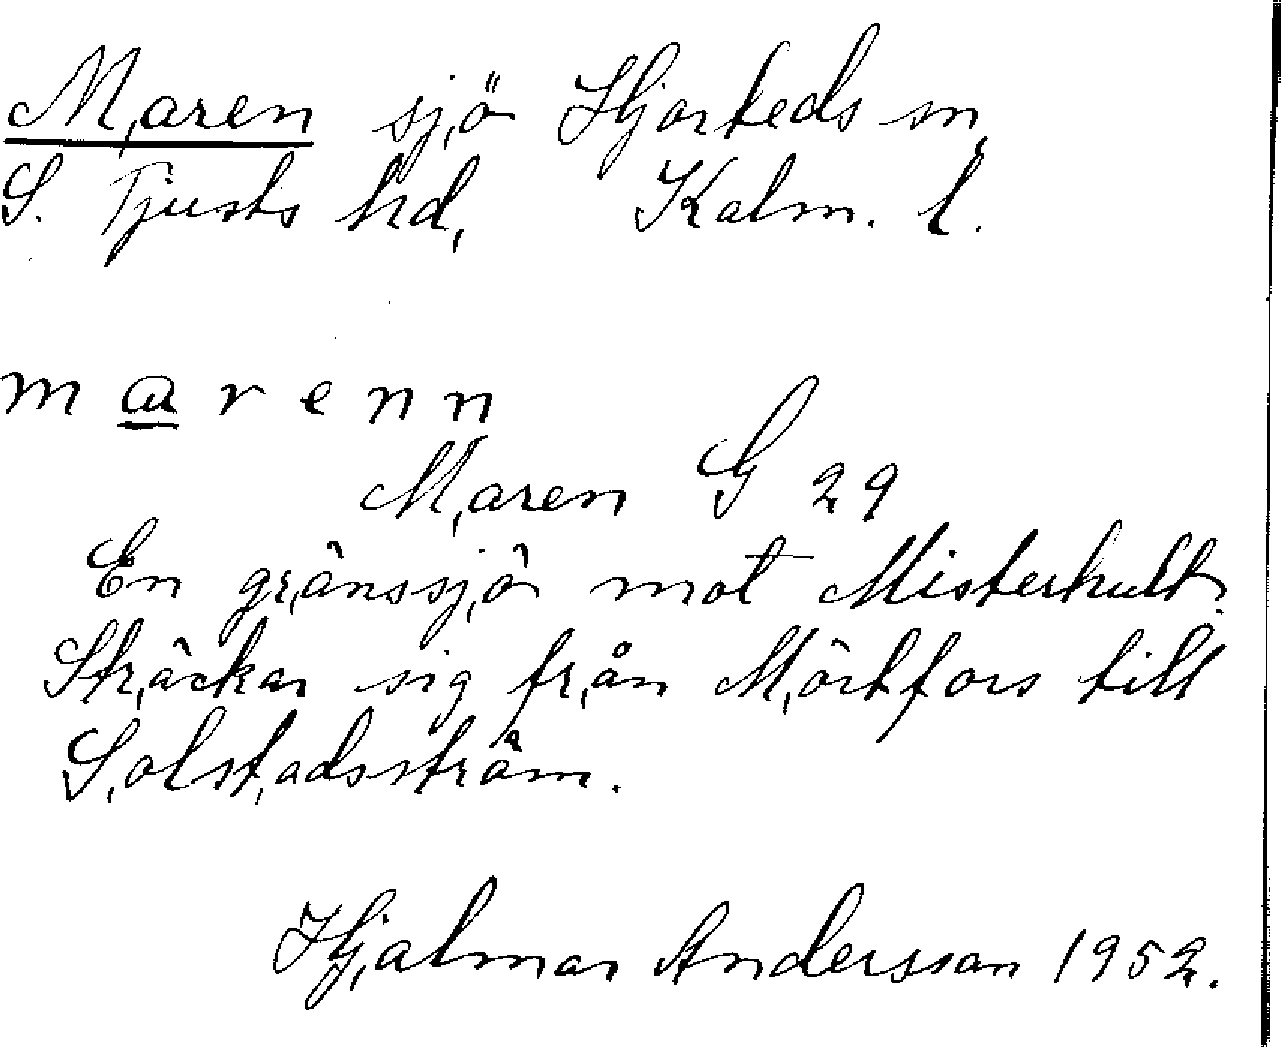 Maren sjö Hjorteds sn,
S. Tjusts hd, Kalm. l.
m a r e n n
Maren G 29
En gränssjö mot Misterhult.
Sträcker sig från Mörtfors till
Solstadsström.
Hjalmar Andersson 1952.